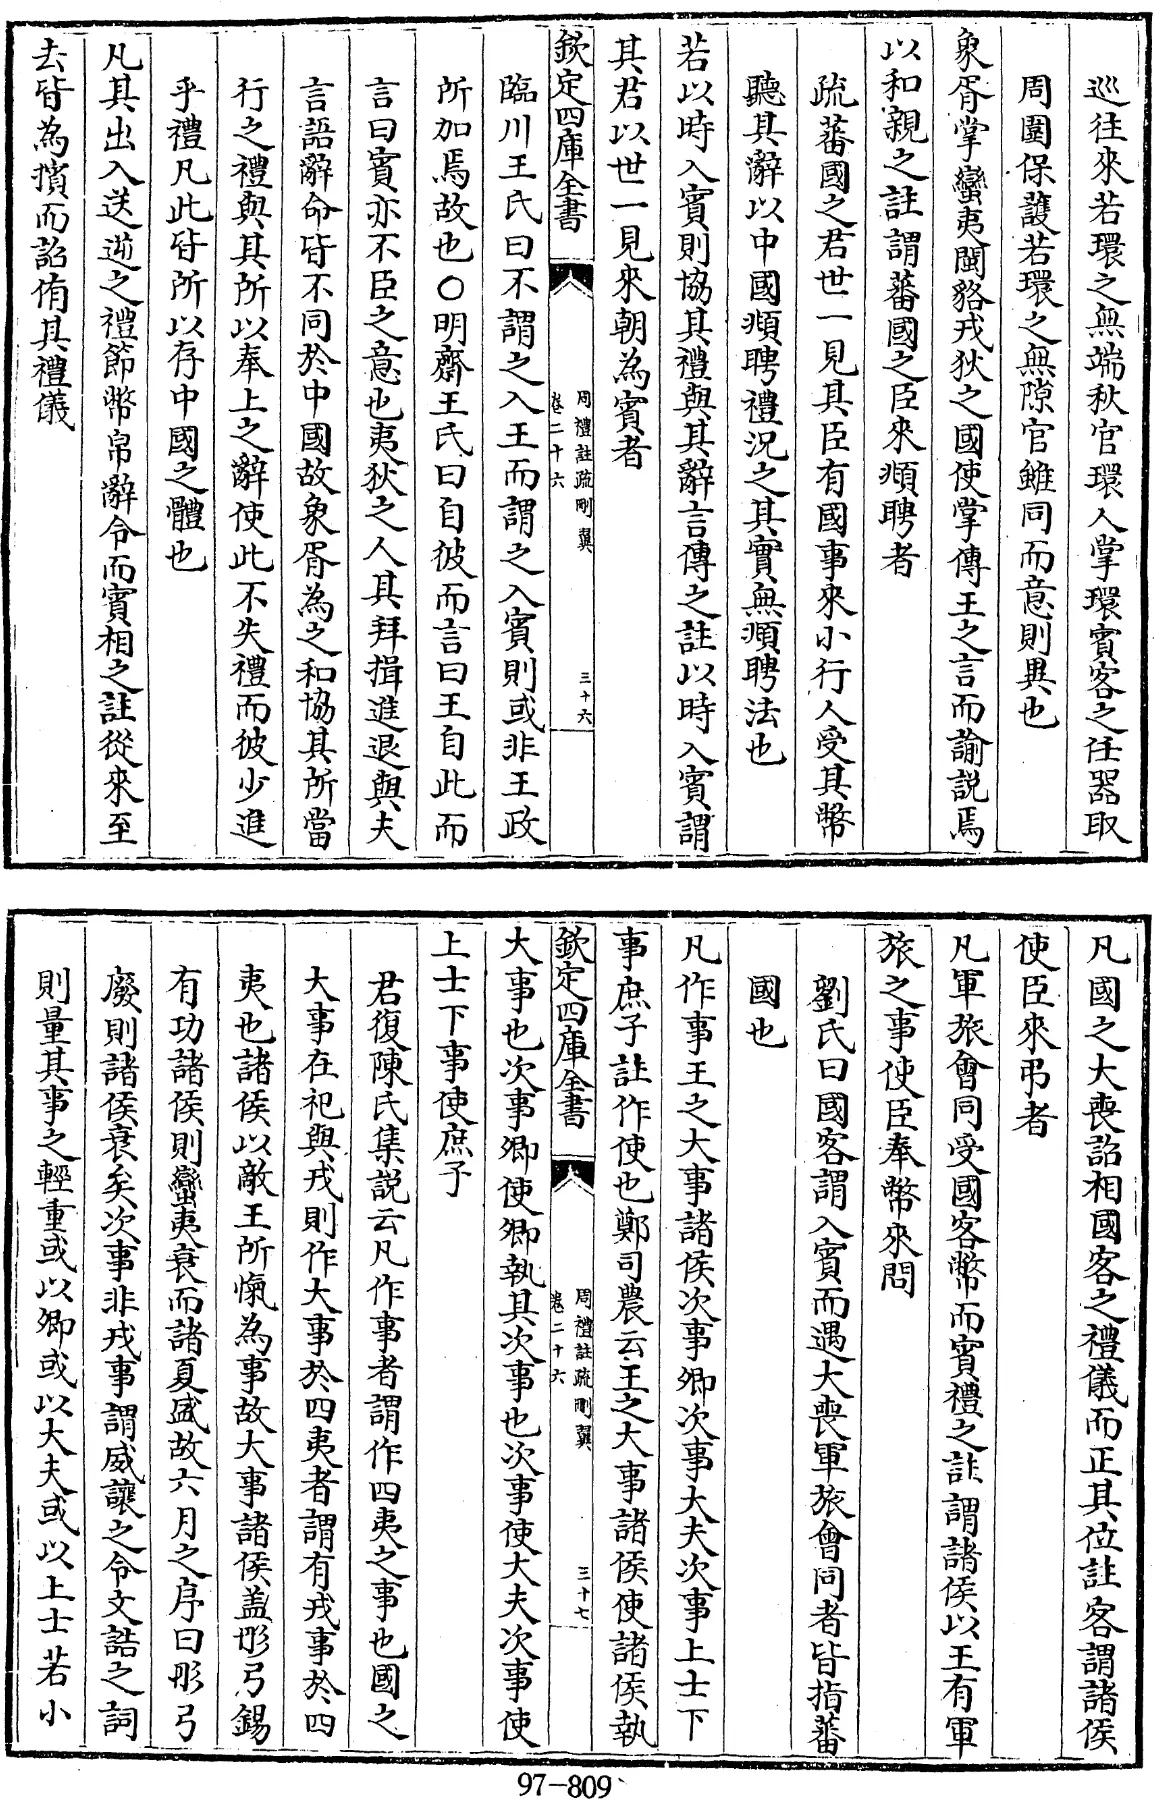 巡往來若環之無端秋官環人掌環賔客之任器取
周圍保護若環之無隙官雖同而意則異也
象胥掌蠻夷閩貉戎狄之國使掌傳王之言而諭説焉
以和親之註謂蕃國之臣來頫聘者
疏蕃國之君世一見其臣有國事來小行人受其幣
聽其辭以中國頫聘禮況之其實無頫聘法也
若以時入賔則協其禮與其辭言傳之註以時入賔謂
其君以世一見來朝為賔者
欽定四庫全書
周禮註疏刪翼
卷二十六
三十六
臨川王氏曰不謂之入王而謂之入賔則或非王政
所加焉故也○明齋王氏曰自彼而言曰王自此而
言曰賔亦不臣之意也夷狄之人其拜揖進退與夫
言語辭命皆不同於中國故象胥為之和協其所當
行之禮與其所以奉上之辭使此不失禮而彼少進
乎禮凡此皆所以存中國之體也
凡其出入送逆之禮節幣帛辭令而賔相之註從來至
去皆為擯而詔侑其禮儀
凡國之大喪詔相國客之禮儀而正其位註客謂諸侯
使臣來弔者
凡軍旅會同受國客幣而賔禮之註謂諸侯以王有軍
旅之事使臣奉幣來問
劉氏曰國客謂入賔而遇大喪軍旅會同者皆指蕃
國也
凡作事王之大事諸侯次事卿次事大夫次事上士下
事庶子註作使也鄭司農云王之大事諸侯使諸侯執
欽定四庫全書
周禮註疏刪翼
卷二十六
三十七
大事也次事卿使卿執其次事也次事使大夫次事使
上士下事使庶子
君復陳氏集説云凡作事者謂作四夷之事也國之
大事在祀與戎則作大事於四夷者謂有戎事於四
夷也諸侯以敵王所愾為事故大事諸侯蓋彤弓錫
有功諸侯則蠻夷衰而諸夏盛故六月之序曰彤弓
廢則諸侯衰矣次事非戎事謂威讓之令文誥之詞
則量其事之輕重或以卿或以大夫或以上士若小
97-809